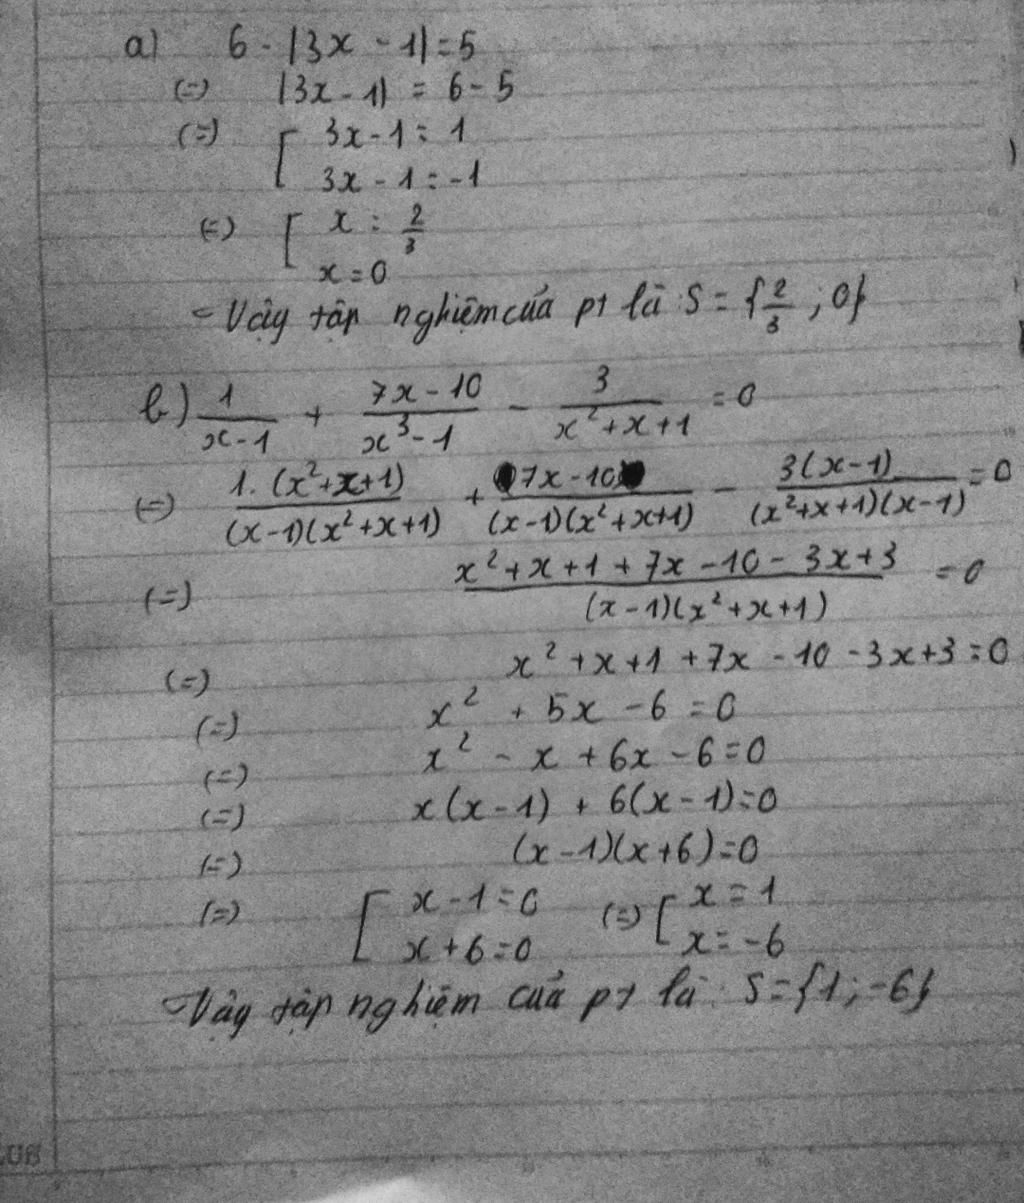 a) 6 - |3x - 1| = 5
(=) |3x - 1| = 6 - 5
(=) [ 3x - 1 = 1
3x - 1 = -1
(=) [ x = 2/3
x = 0
- Vậy tập nghiệm của pt là S = {2/3 ; 0}
b) 1/(x-1) + (7x - 10)/(x³ - 1) - 3/(x² + x + 1) = 0
(=) 1.(x²+x+1)/((x-1)(x²+x+1)) + (7x - 10)/((x-1)(x²+x+1)) - 3(x-1)/((x²+x+1)(x-1)) = 0
(=) (x² + x + 1 + 7x - 10 - 3x + 3)/((x-1)(x²+x+1)) = 0
(=) x² + x + 1 + 7x - 10 - 3x + 3 = 0
(=) x² + 5x - 6 = 0
(=) x² - x + 6x - 6 = 0
(=) x(x - 1) + 6(x - 1) = 0
(=) (x - 1)(x + 6) = 0
(=) [ x - 1 = 0 (=) [ x = 1
x + 6 = 0 x = -6
- Vậy tập nghiệm của pt là: S = {1 ; -6}